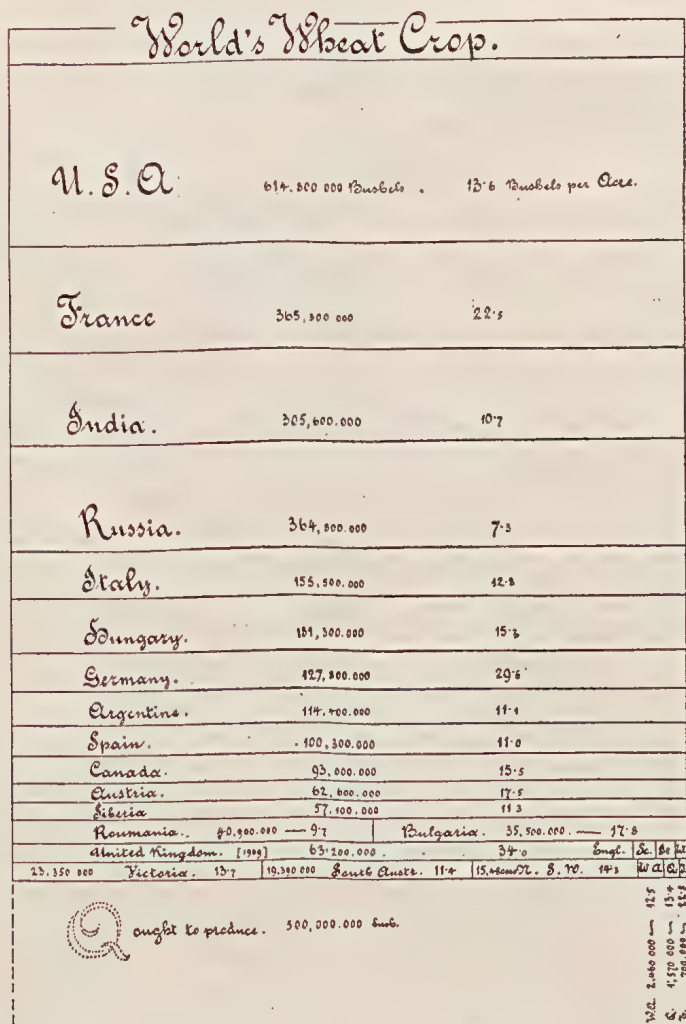 World's Wheat Crop.
U. S. A. 614.800 000 Bushels . 13·6 Bushels per Acre.
France 365,300 000 22·5
India. 305,600.000 10·7
Russia. 364,500.000 7·3
Italy. 155,500.000 12·8
Hungary. 131,300.000 15·2
Germany. 127,800.000 29·6
Argentine. 114,400.000 11·1
Spain. 100,300.000 11·0
Canada. 93,000.000 15·5
Austria. 62,600.000 17·5
Siberia 57.100.000 11·3
Roumania. 40,900.000 — 9·7 Bulgaria. 35,500.000. — 17·8
United Kingdom. [1909] 63·200.000. 34·0 Engl. Sc.
23,350 000 Victoria. 13·7 19,390 000 South Austr. 11·4 N. S. W. 14·3 W A Q
Q ought to produce. 500,000.000 bush.
W.A. 2,460 000 — 12·5
Q. 1,570 000 — 13·4